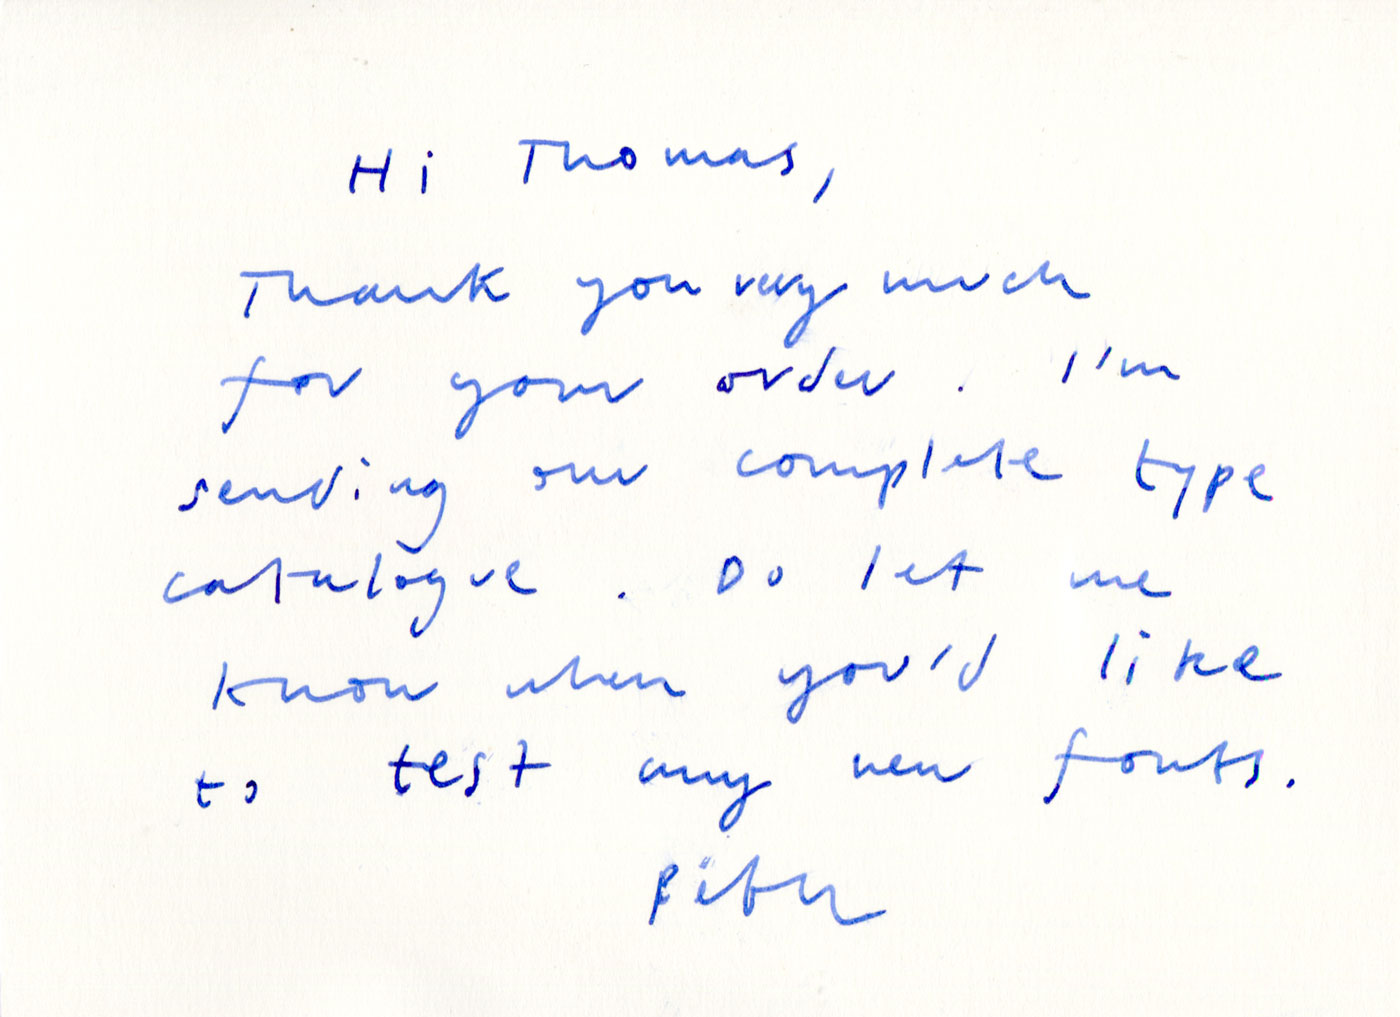 Hi Thomas,
Thank you very much
for your order. I'm
sending our complete type
catalogue. Do let me
know when you'd like
to test any new fonts.
Peter